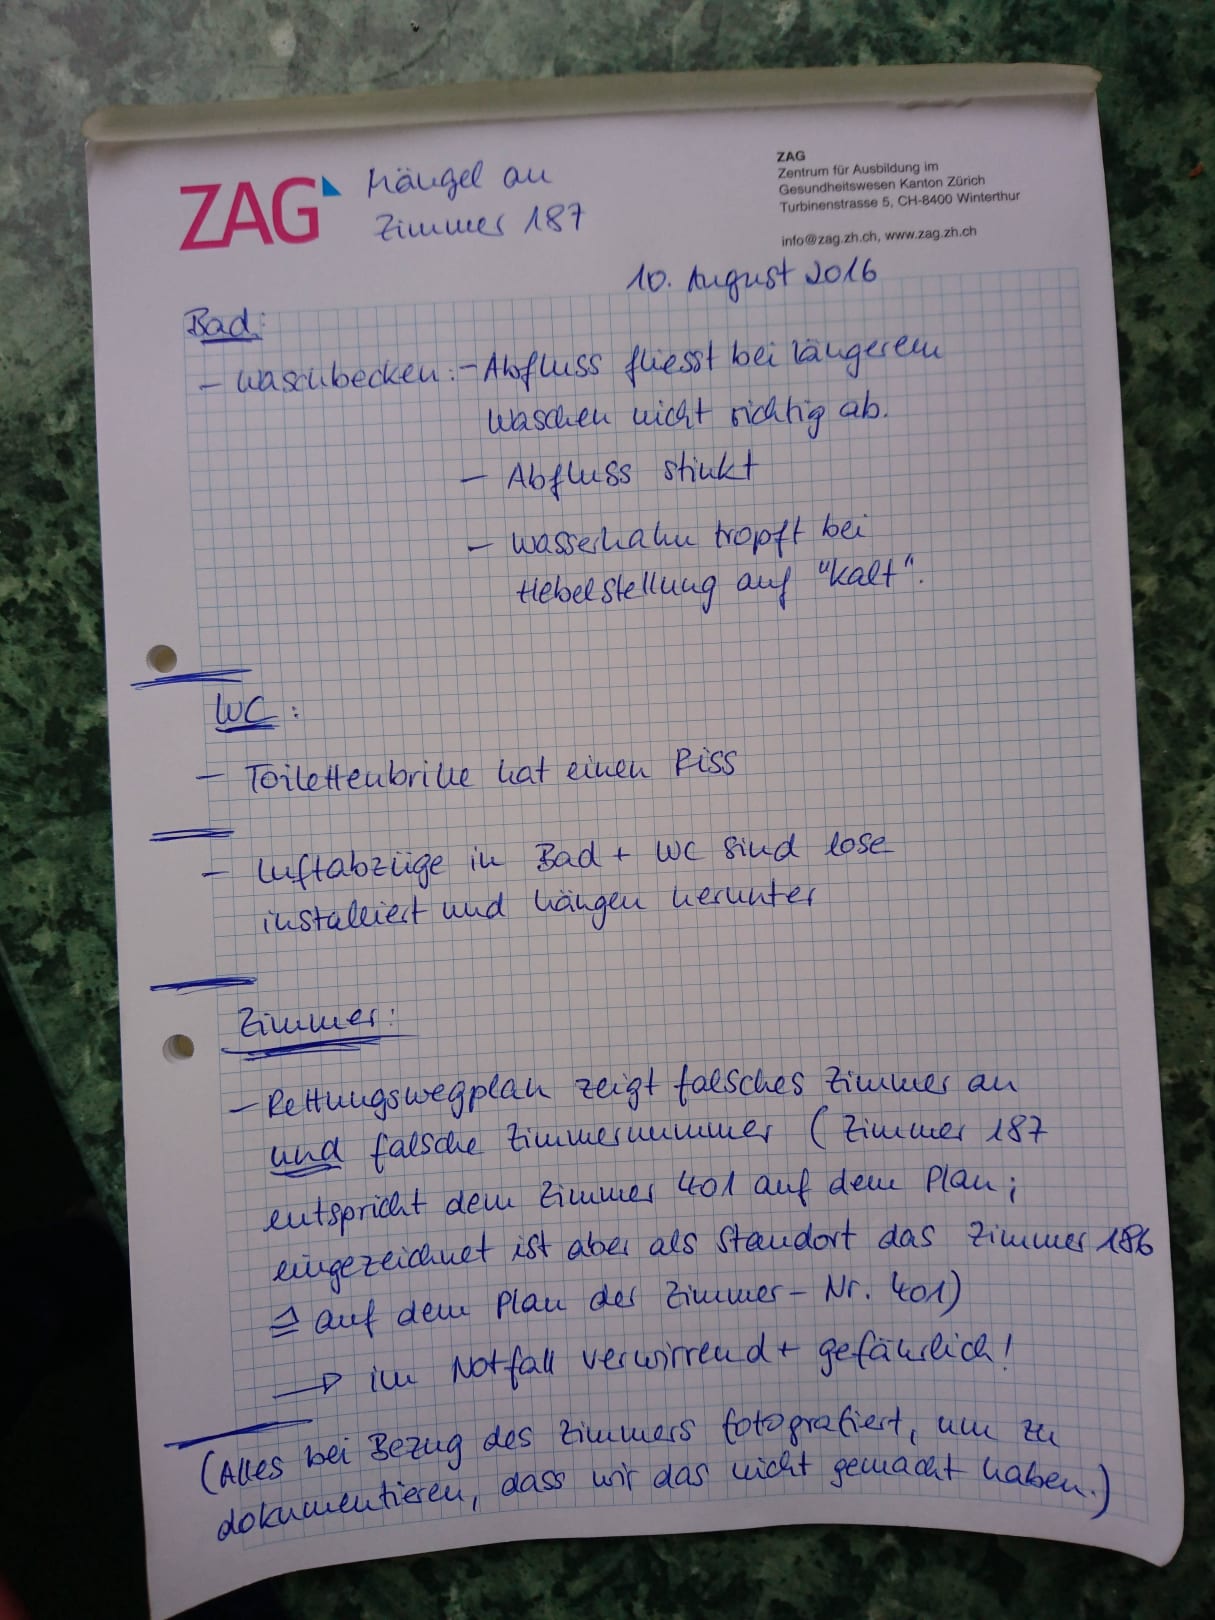 ZAG
Mängel an
Zimmer 187
ZAG
Zentrum für Ausbildung im
Gesundheitswesen Kanton Zürich
Turbinenstrasse 5, CH-8400 Winterthur
info@zag.zh.ch, www.zag.zh.ch
10. August 2016
Bad:
- Waschbecken: - Abfluss fliesst bei längerem
Waschen nicht richtig ab.
- Abfluss stinkt
- Wasserhahn tropft bei
Hebelstellung auf "Kalt".
WC:
- Toilettenbrille hat einen Riss
- Luftabzüge in Bad + WC sind lose
installiert und hängen herunter
Zimmer:
- Rettungswegplan zeigt falsches Zimmer an
und falsche Zimmernummer (Zimmer 187
entspricht dem Zimmer 401 auf dem Plan;
eingezeichnet ist aber als Standort das Zimmer 186
≙ auf dem Plan der Zimmer-Nr. 401)
→ im Notfall verwirrend + gefährlich!
(Alles bei Bezug des Zimmers fotografiert, um zu
dokumentieren, dass wir das nicht gemacht haben.)